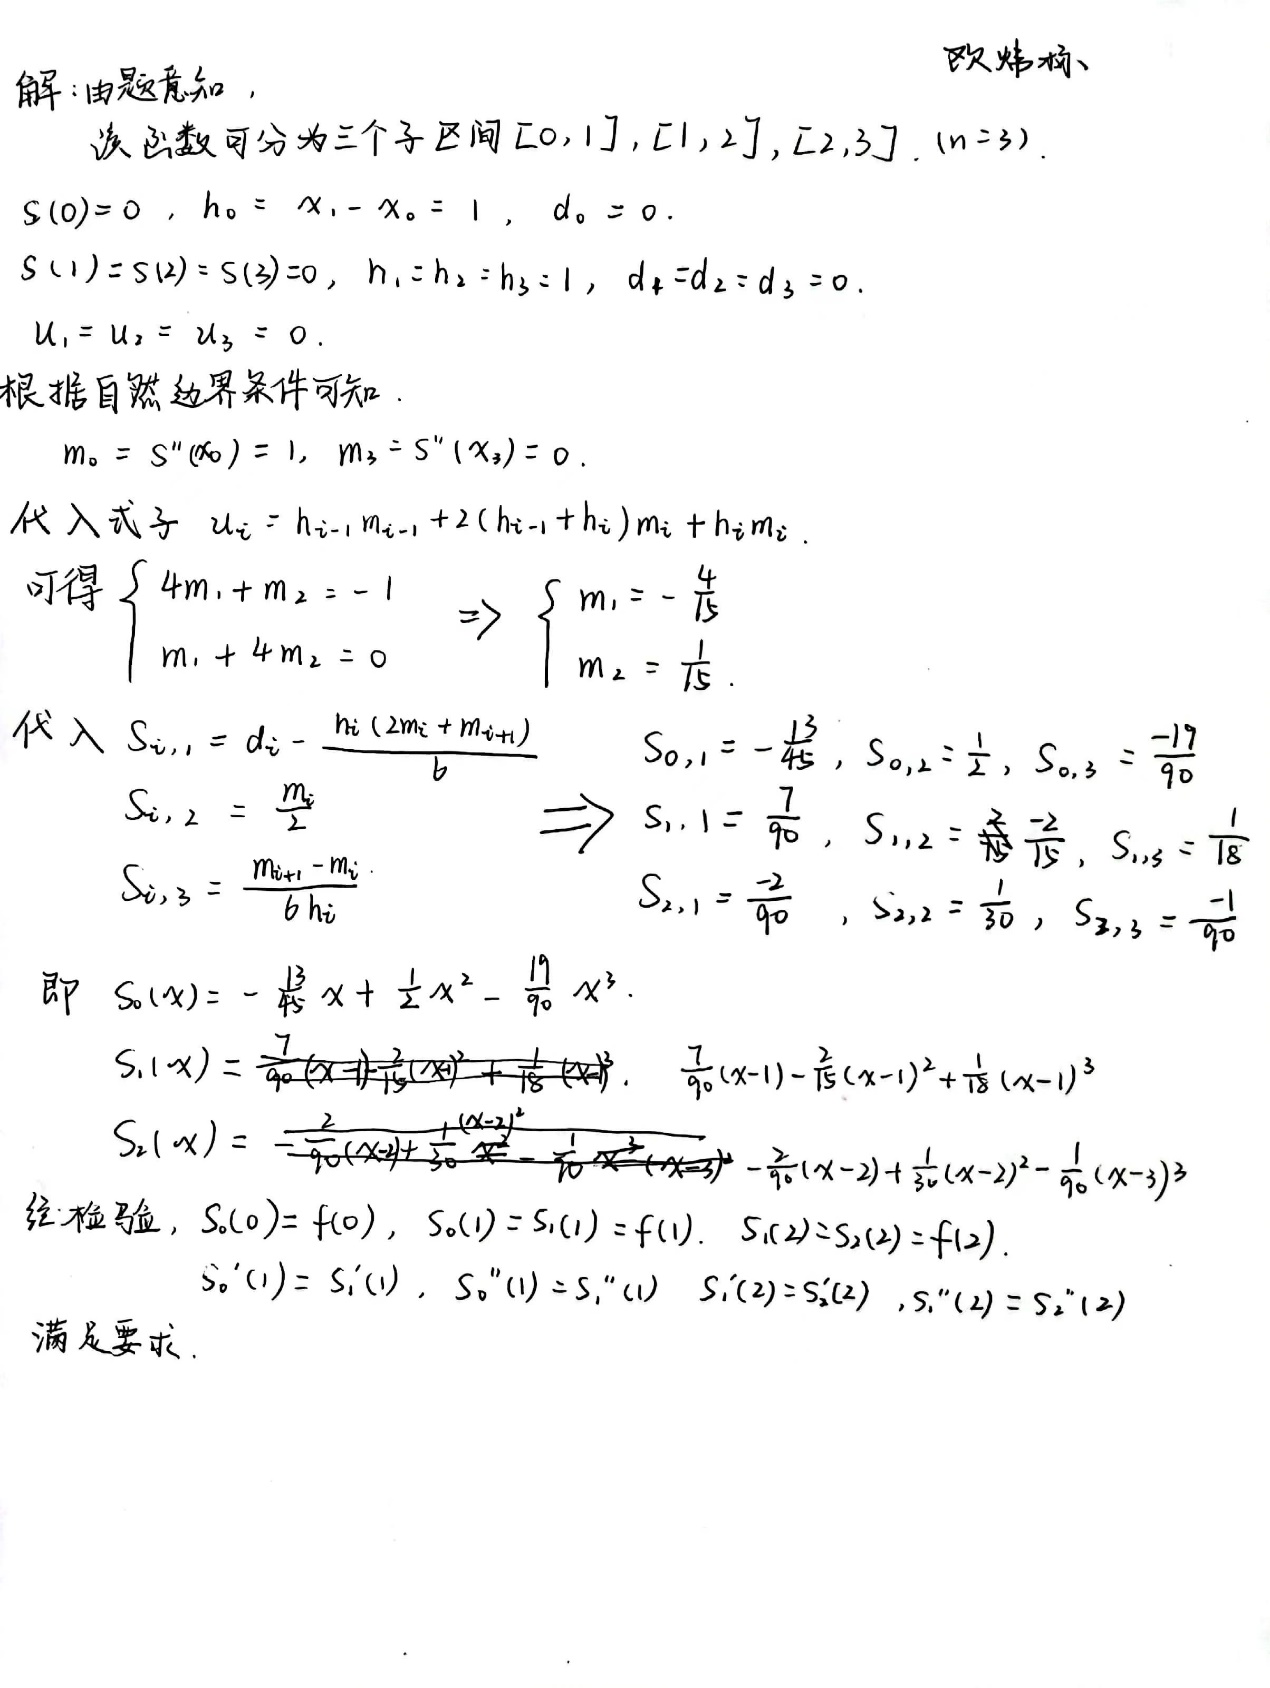 欧炜杨
解:由题意知,
该函数可分为三个子区间[0,1],[1,2],[2,3]. (n=3).
S(0)=0, h₀ = x₁-x₀ = 1, d₀ = 0.
S(1)=S(2)=S(3)=0, h₁=h₂=h₃=1, d₁=d₂=d₃=0.
u₁ = u₂ = u₃ = 0.
根据自然边界条件可知.
m₀ = S''(x₀) = 1, m₃ = S''(x₃) = 0.
代入式子 uᵢ = hᵢ₋₁mᵢ₋₁+2(hᵢ₋₁+hᵢ)mᵢ+hᵢmᵢ.
可得 { 4m₁+m₂=-1 => { m₁ = -4/15
m₁+4m₂=0 m₂ = 1/15.
代入 Sᵢ,₁ = dᵢ - hᵢ(2mᵢ+mᵢ₊₁)/6 S₀,₁ = -13/45, S₀,₂ = 1/2, S₀,₃ = -19/90
Sᵢ,₂ = mᵢ/2 => S₁,₁ = 7/90, S₁,₂ = -2/15, S₁,₃ = 1/18
Sᵢ,₃ = (mᵢ₊₁-mᵢ)/6hᵢ. S₂,₁ = -2/90, S₂,₂ = 1/30, S₂,₃ = -1/90
即 S₀(x) = -13/45x + 1/2x² - 19/90x³.
S₁(x) = 7/90(x-1)-2/15(x-1)²+1/18(x-1)³
S₂(x) = -2/90(x-2)+1/30(x-2)²-1/90(x-3)³
经检验, S₀(0)=f(0), S₀(1)=S₁(1)=f(1). S₁(2)=S₂(2)=f(2).
S₀'(1)=S₁'(1), S₀''(1)=S₁''(1) S₁'(2)=S₂'(2), S₁''(2)=S₂''(2)
满足要求.